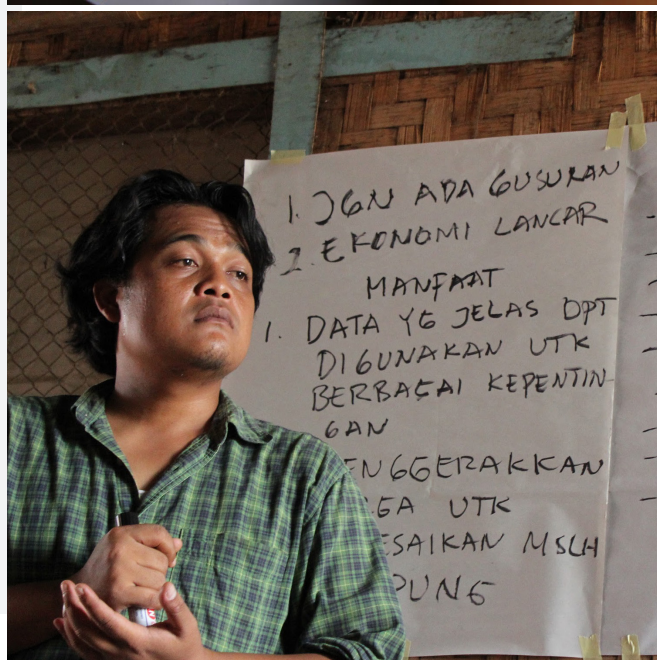 1. JGN ADA GUSURAN
2. EKONOMI LANCAR
MANFAAT
1. DATA YG JELAS DPT
DIGUNAKAN UTK
BERBAGAI KEPENTIN
GAN
ENGGERAKKAN
GA UTK
ESAIKAN MSLH
PUNG